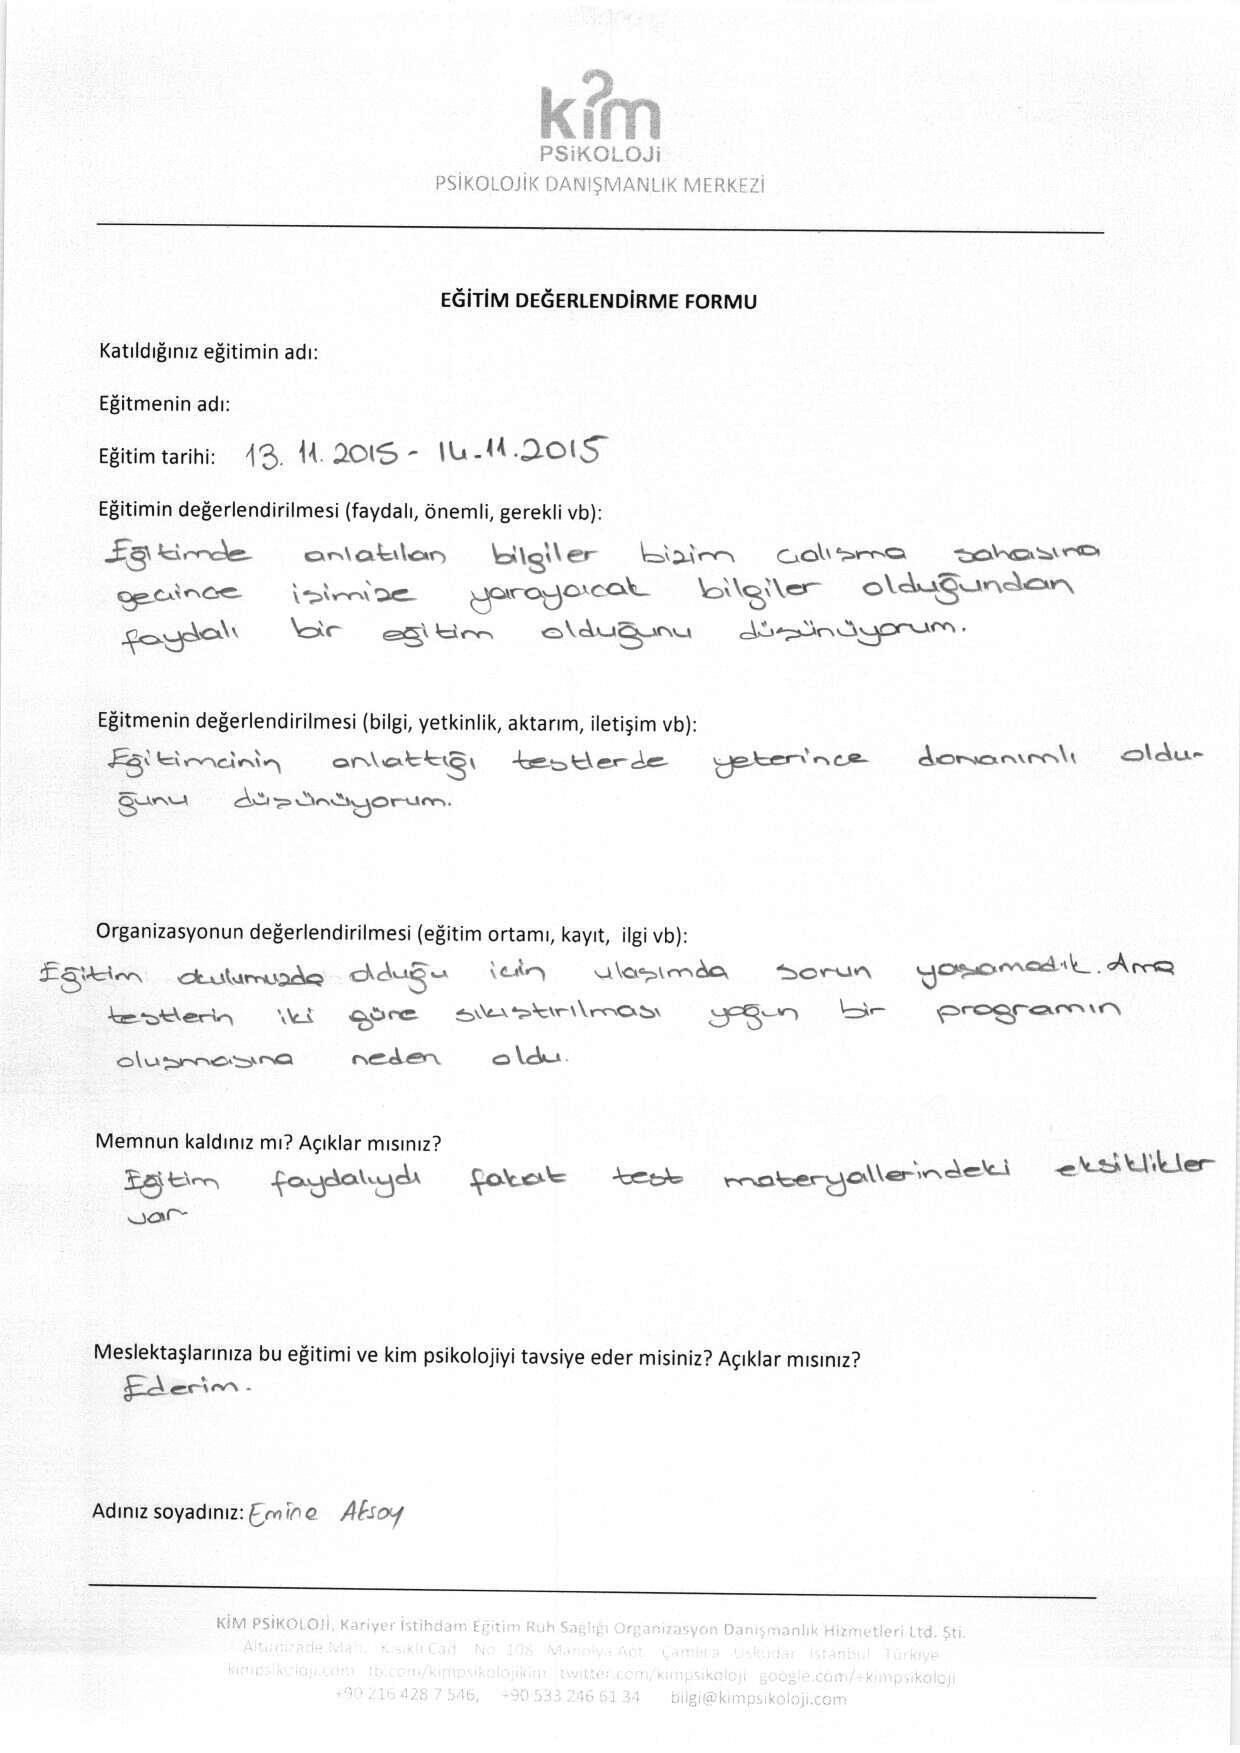 kim
PSiKOLOJi
PSİKOLOJİK DANIŞMANLIK MERKEZİ
EĞİTİM DEĞERLENDİRME FORMU
Katıldığınız eğitimin adı:
Eğitmenin adı:
Eğitim tarihi: 13.11.2015 - 14.11.2015
Eğitimin değerlendirilmesi (faydalı, önemli, gerekli vb):
Eğitimde anlatılan bilgiler bizim çalışma sahasına
geçince işimize yarayacak bilgiler olduğundan
faydalı bir eğitim olduğunu düşünüyorum.
Eğitmenin değerlendirilmesi (bilgi, yetkinlik, aktarım, iletişim vb):
Eğitimcinin anlattığı testlerde yeterince donanımlı oldu-
ğunu düşünüyorum.
Organizasyonun değerlendirilmesi (eğitim ortamı, kayıt, ilgi vb):
Eğitim okulumuzda olduğu için ulaşımda sorun yaşamadık. Ama
testlerin iki güne sıkıştırılması yoğun bir programın
oluşmasına neden oldu.
Memnun kaldınız mı? Açıklar mısınız?
Eğitim faydalıydı fakat test materyallerindeki eksiklikler
var
Meslektaşlarınıza bu eğitimi ve kim psikolojiyi tavsiye eder misiniz? Açıklar mısınız?
Ederim.
Adınız soyadınız: Emine Aksoy
KİM PSİKOLOJİ, Kariyer İstihdam Eğitim Ruh Sağlığı Organizasyon Danışmanlık Hizmetleri Ltd. Şti.
Altunizade Mah. Kısıklı Cad. No 108 Manolya Apt. Çamlıca Üsküdar İstanbul Türkiye
kimpsikoloji.com fb.com/kimpsikolojikim twitter.com/kimpsikoloji google.com/+kimpsikoloji
+90 216 428 7 546, +90 533 246 61 34 bilgi@kimpsikoloji.com